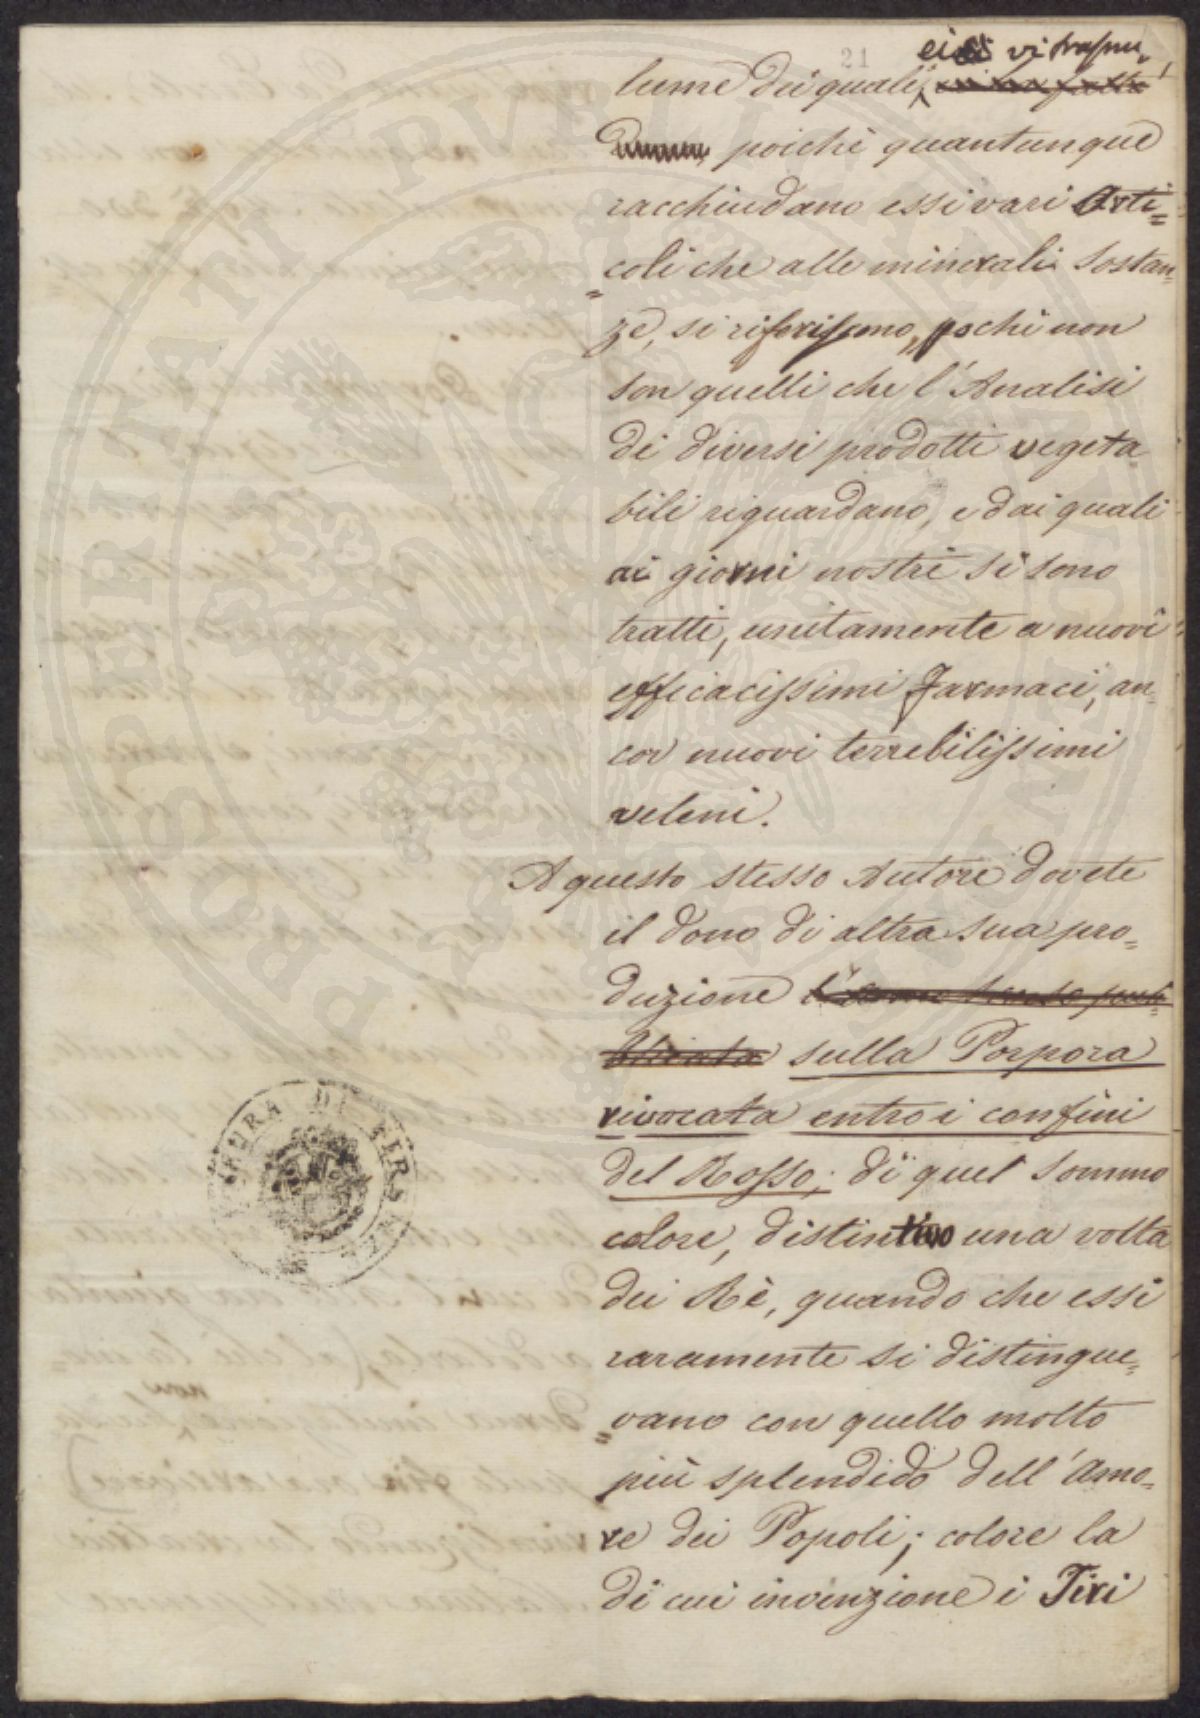 21
ei vi trasmi
lume dei quali,
poichè quantunque
racchiudano essi vari Arti=
=coli che alle minerali Sostan=
ze, si riferissono, pochi non
son quelli che l'Analisi
di diversi prodotti vegeta
bili riguardano, e dai quali
ai giorni nostri si sono
tratti, unitamente a nuovi
efficacissimi Farmaci, an=
cor nuovi terrebilissimi
veleni.
A questo stesso Autore dovete
il dono di altra sua pro=
duzione
sulla Porpora
rivocata entro i confini
del Rosso; di quel sommo
colore, distintivo una volta
dei Rè, quando che essi
raramente si distingue=
=vano con quello molto
più splendido dell'Amo=
re dei Popoli; colore la
di cui invenzione i Tiri
PROSPERITATI PUBLICAE